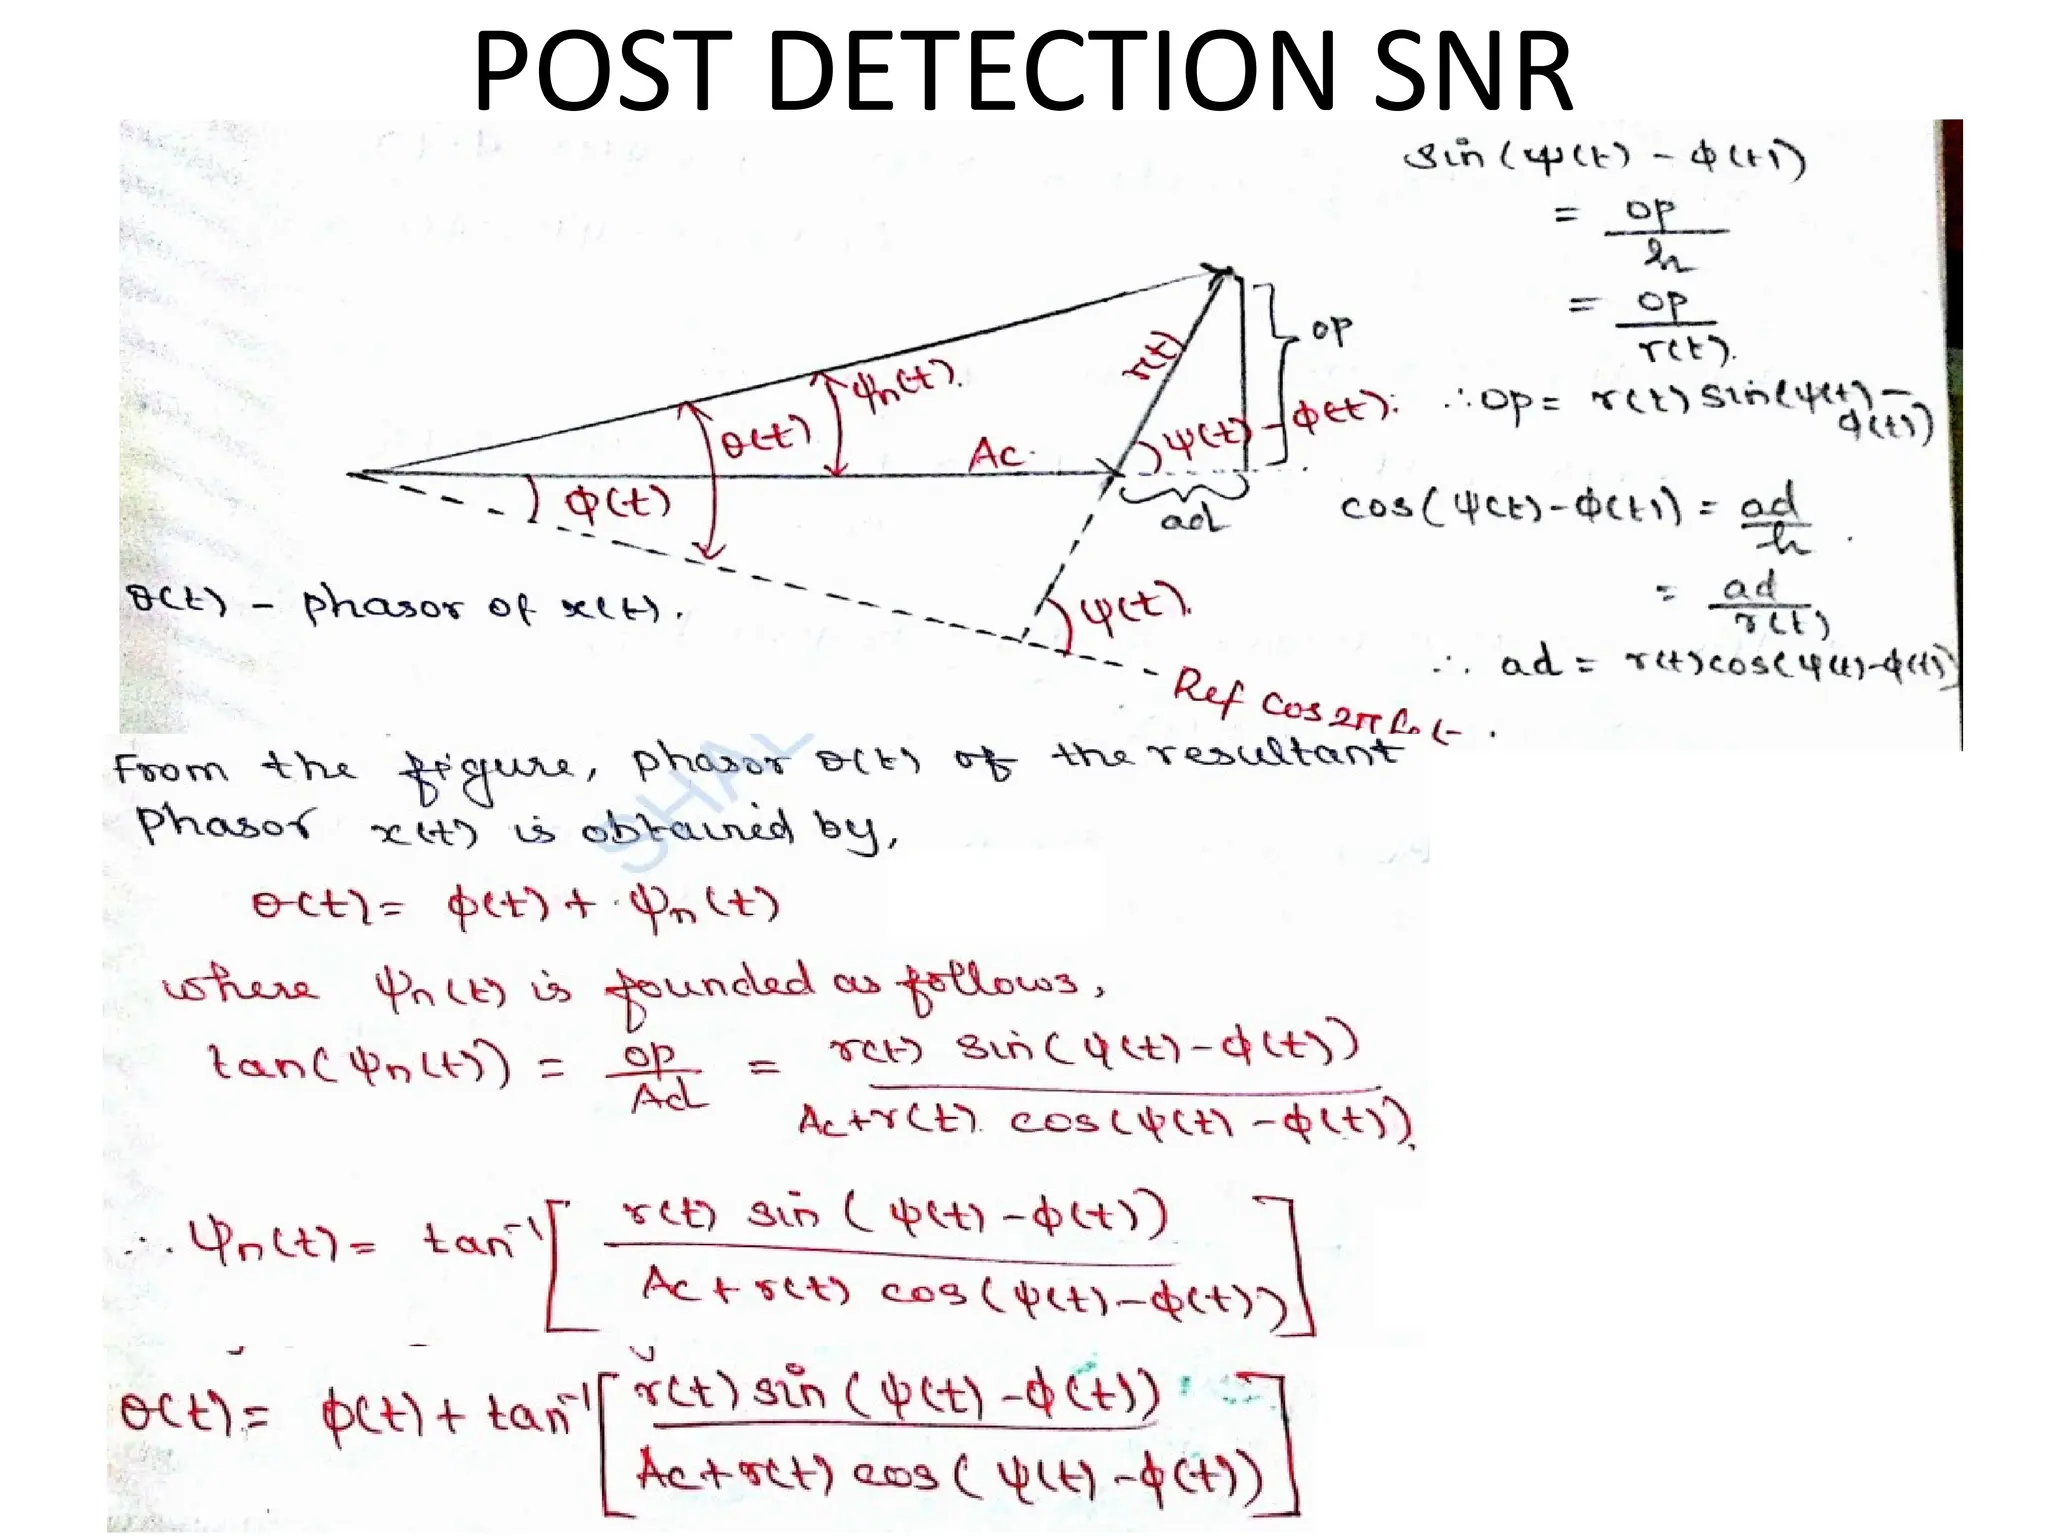 POST DETECTION SNR
sin(ψ(t) - ϕ(t))
= op/h
= op/r(t).
∴ op = r(t) sin(ψ(t) - ϕ(t))
cos(ψ(t) - ϕ(t)) = ad/h.
= ad/r(t)
∴ ad = r(t) cos(ψ(t) - ϕ(t))
op
r(t)
ψn(t).
θ(t)
Ac.
ψ(t) - ϕ(t).
ϕ(t)
ad
ψ(t).
θ(t) - phasor of x(t).
Ref cos 2π fc t.
From the figure, phasor θ(t) of the resultant
phasor x(t) is obtained by,
θ(t) = ϕ(t) + ψn(t)
where ψn(t) is founded as follows,
tan(ψn(t)) = op/Ad = r(t) sin(ψ(t) - ϕ(t)) / Ac + r(t). cos(ψ(t) - ϕ(t)).
∴ ψn(t) = tan⁻¹[ r(t) sin(ψ(t) - ϕ(t)) / Ac + r(t) cos(ψ(t) - ϕ(t)) ]
θ(t) = ϕ(t) + tan⁻¹[ r(t) sin(ψ(t) - ϕ(t)) / Ac + r(t) cos(ψ(t) - ϕ(t)) ]